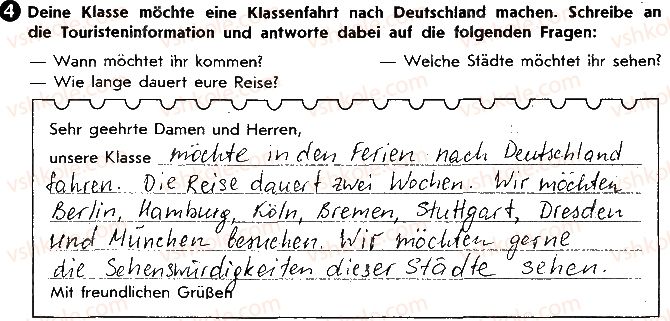 4 Deine Klasse möchte eine Klassenfahrt nach Deutschland machen. Schreibe an
die Touristeninformation und antworte dabei auf die folgenden Fragen:
— Wann möchtet ihr kommen? — Welche Städte möchtet ihr sehen?
— Wie lange dauert eure Reise?
Sehr geehrte Damen und Herren,
unsere Klasse möchte in den Ferien nach Deutschland
fahren. Die Reise dauert zwei Wochen. Wir möchten
Berlin, Hamburg, Köln, Bremen, Stuttgart, Dresden
und München besuchen. Wir möchten gerne
die Sehenswürdigkeiten dieser Städte sehen.
Mit freundlichen Grüßen